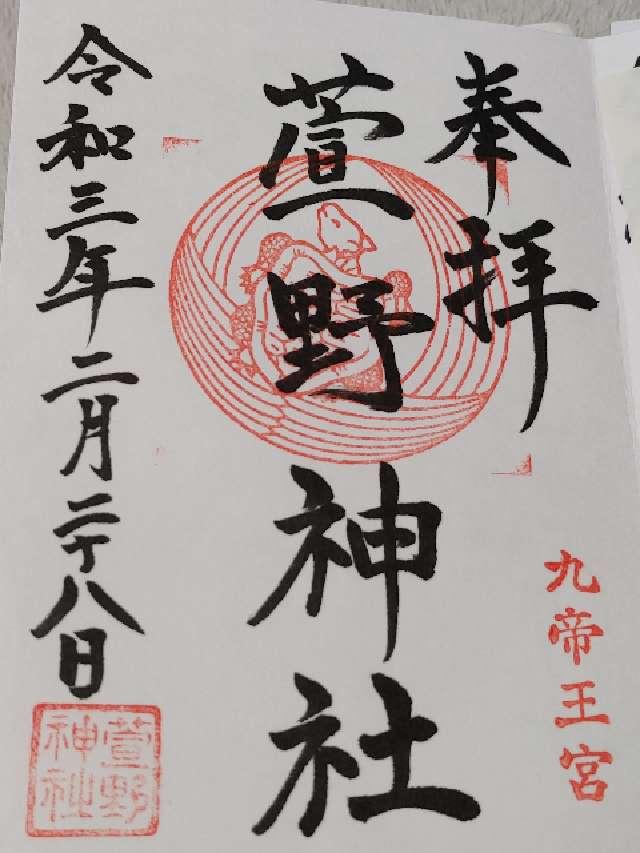 奉拝
九帝王宮
萱野神社
令和三年二月二十八日
萱野
神社